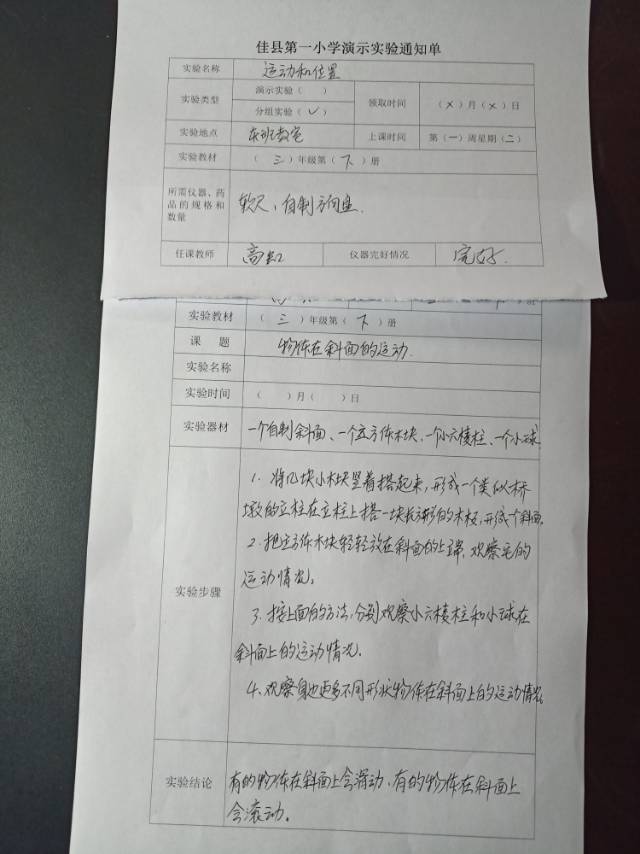 佳县第一小学演示实验通知单
实验名称 运动和位置
实验类型 演示实验（ ） 领取时间 （×）月（×）日
分组实验（√）
实验地点 本班教室 上课时间 第（一）周星期（二）
实验教材 （三）年级第（下）册
所需仪器、药品的规格和数量 软尺、自制方向盘.
任课教师 高虹 仪器完好情况 完好.
实验教材 （三）年级第（下）册
课 题 物体在斜面的运动.
实验名称
实验时间 （ ）月（ ）日
实验器材 一个自制斜面、一个立方体木块、一个小六棱柱、一个小球
实验步骤
1. 将几块小木块竖着搭起来,形成一个类似桥
墩的立柱在立柱上搭一块长方形的木板,形成个斜面.
2. 把立方体木块轻轻放在斜面的上端,观察它的
运动情况。
3. 按上面的方法,分别观察小六棱柱和小球在
斜面上的运动情况.
4. 观察身边更多不同形状物体在斜面上的运动情况.
实验结论 有的物体在斜面上会滑动,有的物体在斜面上
会滚动。